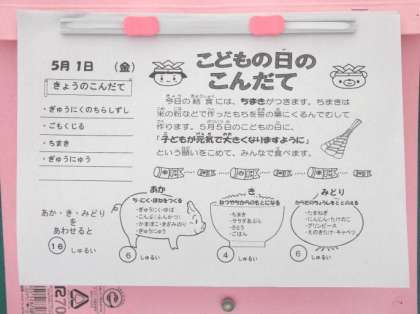 5月1日 (金)
きょうのこんだて
・ぎゅうにくのちらしずし
・ごもくじる
・ちまき
・ぎゅうにゅう
こどもの日の
こんだて
今日の給食には、ちまきがつきます。ちまきは
米の粉などで作ったもちを笹の葉にくるんでむして
作ります。5月5日のこどもの日に、
「子どもが元気で大きくなりますように」
という願いをこめて、みんなで食べます。
あか・き・みどり
をあわせると
16 しゅるい
あか
ち・にく・ほねをつくる
・ぎゅうにく
・こんぶ
・かまぼこ・きざみのり
・ぎゅうにゅう
6 しゅるい
き
ねつやちからのもとになる
・ちまき
・サラダあぶら
・さとう
・ごはん
4 しゅるい
みどり
からだのちょうしをととのえる
・たまねぎ
・にんじん・たけのこ
・グリンピース
・えのきだけ・キャベツ
6 しゅるい